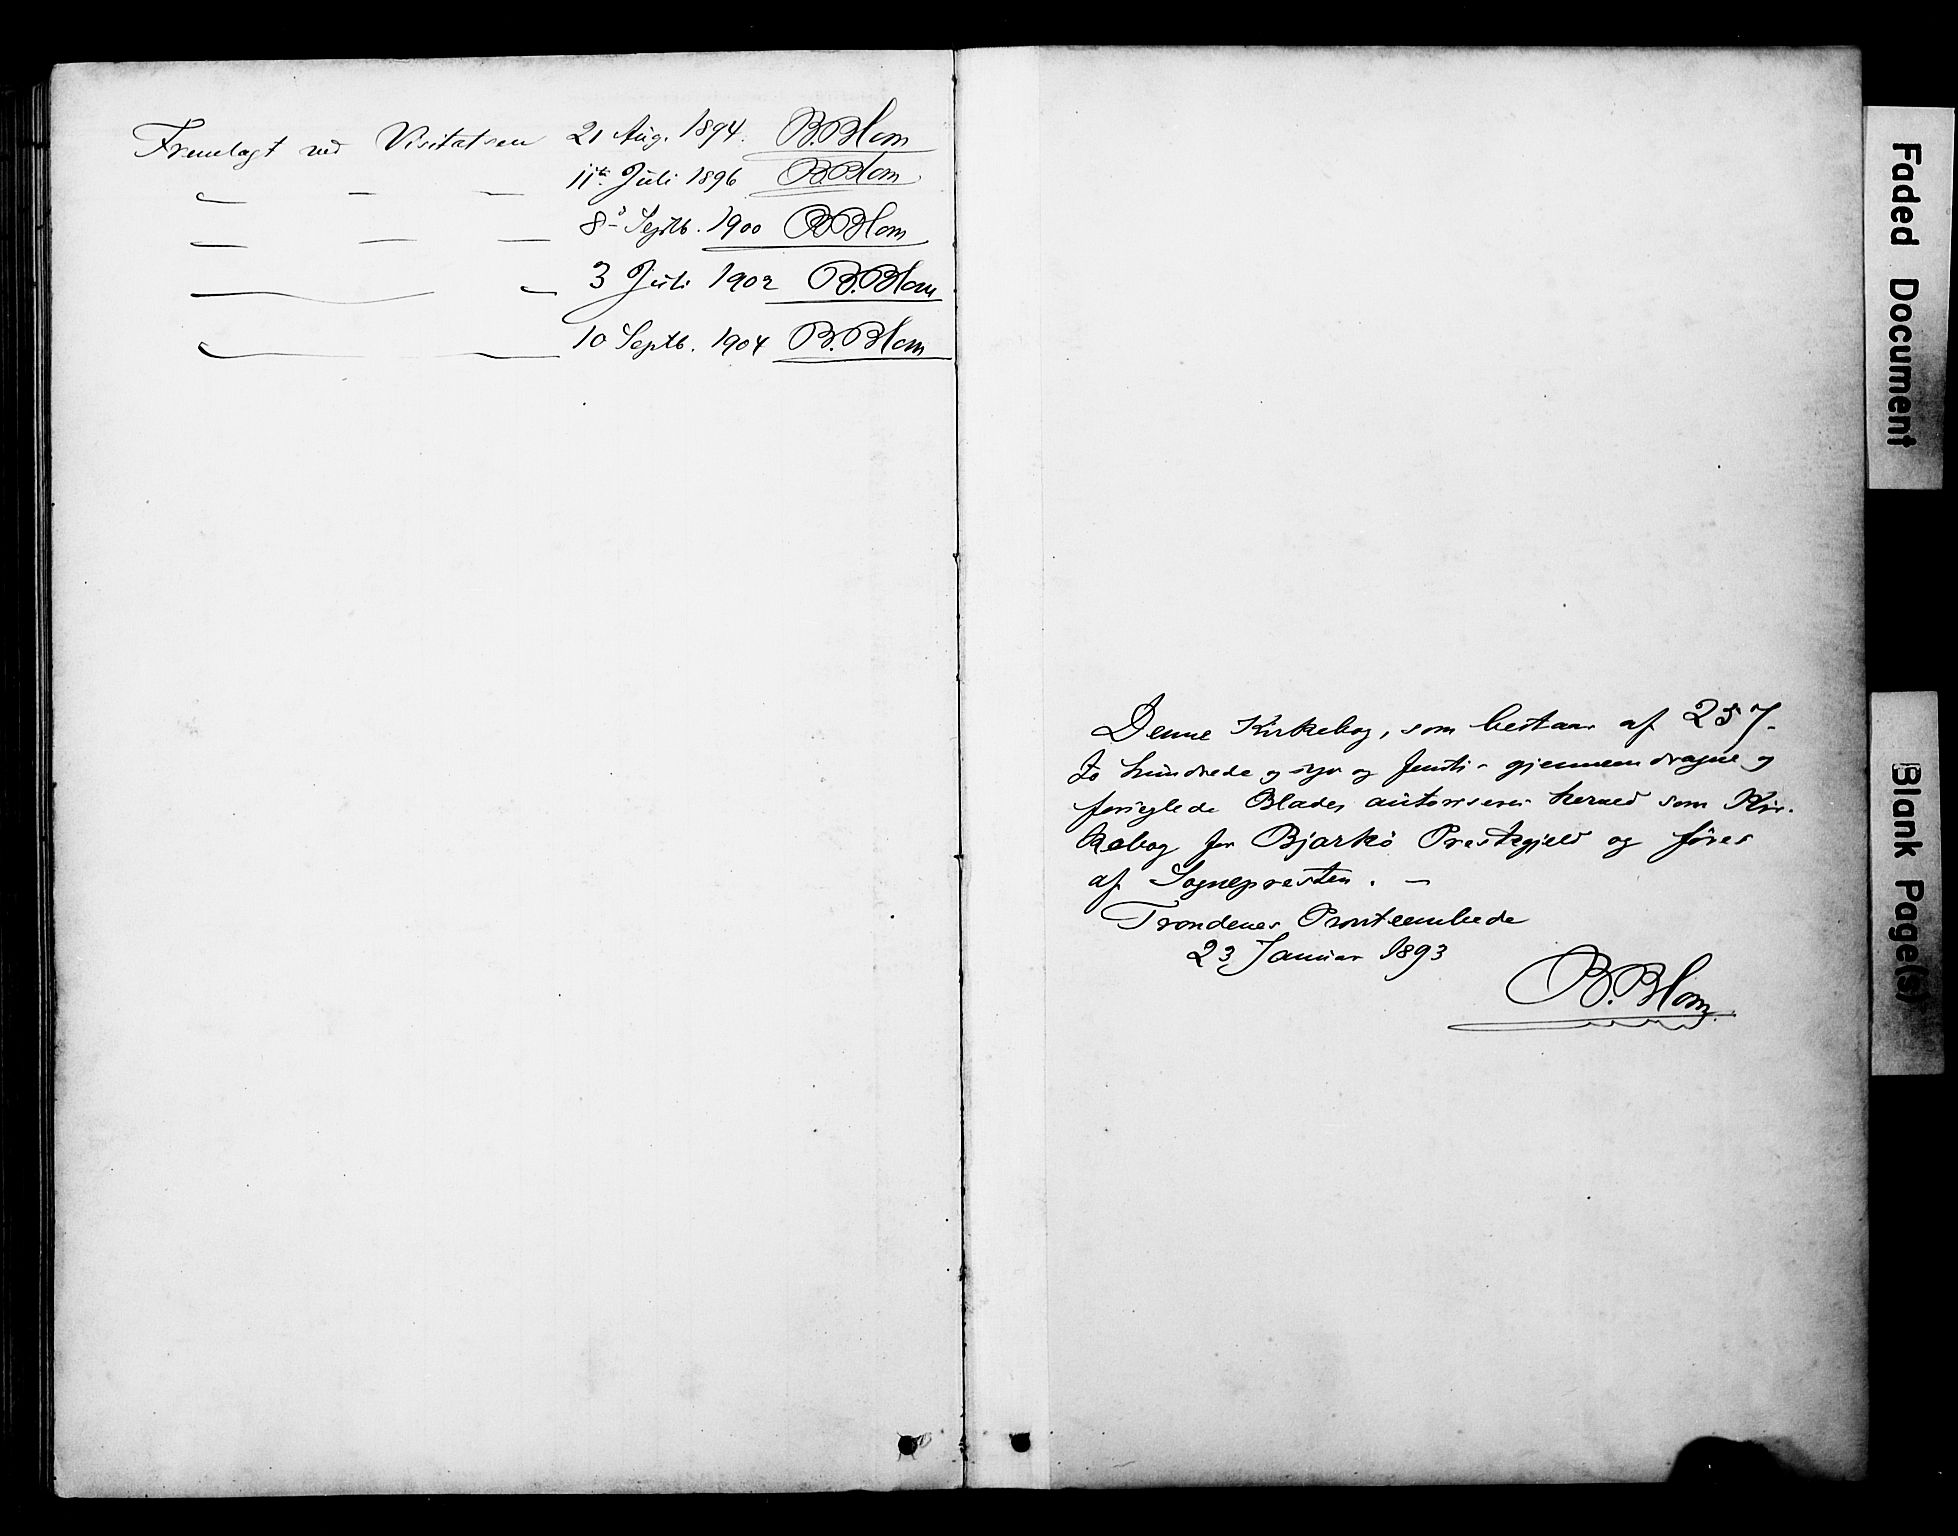 Fremlagt ved Visitatsen 21 Aug. 1894. B. Blom
— — — 11te Juli 1896 B. Blom
— — — 8de Septb. 1900 B. Blom
— — 3 Juli 1902 B. Blom
— — 10 Septb. 1904 B. Blom
Denne Kirkebog, som bestaar af 257-
to hundrede og syv og femti - gjennemdragne og
forseglede Blade, autoriseres herved som Kir-
kebog for Bjarkö Prestegjeld og föres
af Sognepresten. —
Trondenes Provsteembede
23 Januar 1893
B. Blom
Faded Document
Blank Page(s)